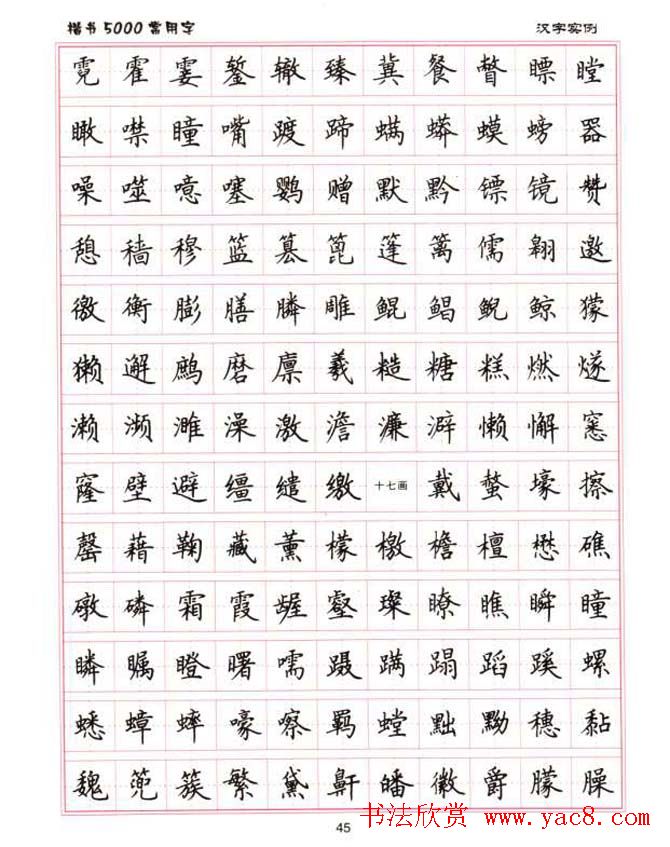 楷书5000常用字 汉字实例
霓 霍 霎 錾 辙 臻 冀 餐 瞥 瞟 瞠
瞰 噤 瞳 嘴 踱 蹄 螨 蟒 蟆 螃 器
噪 噬 噫 塞 鹦 赠 默 黔 镖 镜 赞
憩 穑 穆 篮 篡 篦 篷 篱 儒 翱 邀
徼 衡 膨 膳 膦 雕 鲲 鲳 鲵 鲸 獴
獭 邂 鹧 磨 廪 羲 糙 糖 糕 燃 燧
濑 濒 濉 澡 激 澹 濂 澼 懒 懈 窸
窿 壁 避 缰 缱 缴 十七画 戴 螫 壕 擦
罄 藉 鞠 藏 薰 檬 檄 檐 檀 懋 礁
礅 磷 霜 霞 龌 壑 璨 瞭 瞧 瞬 瞳
瞵 瞩 瞪 曙 嚅 蹑 蹒 蹋 蹈 蹊 螺
蟋 蟑 蟀 嚎 嚓 羁 螳 黜 黝 穗 黏
魏 篼 簇 繁 黛 鼾 皤 徽 爵 朦 臊
45
书法欣赏 www.yac8.com